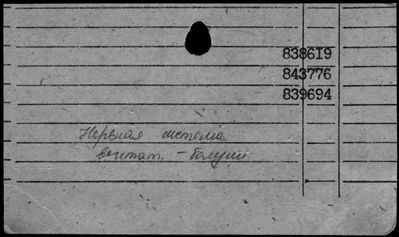 838619
843776
839694
Нервная система
вегетат. –